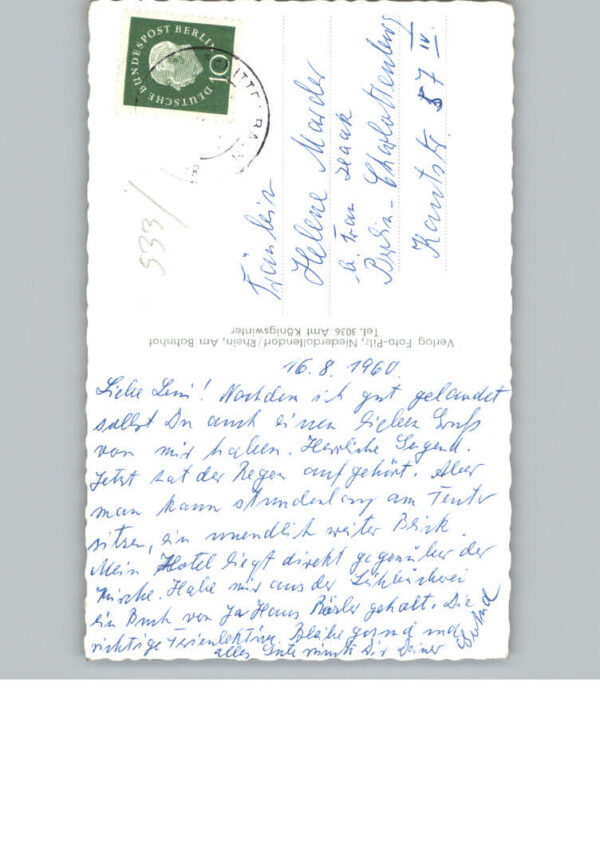 DEUTSCHE BUNDESPOST BERLIN
10
533/
Fräulein
Helene Marder
b. Frau Haak
Berlin-Charlottenburg
Kantstr 87 IV.
Verlag Foto-Pilz, Niederdollendorf/Rhein, Am Bahnhof
Tel. 3036 Amt Königswinter
16. 8. 1960.
Liebe Leni! Nachdem ich gut gelandet
sollst Du auch einen lieben Gruß
von mir haben. Herrliche Gegend.
Jetzt hat der Regen aufgehört. Aber
man kann stundenlang am Fenster
sitzen, ein unendlich weiter Blick.
Mein Hotel liegt direkt gegenüber der
Kirche. Habe mir aus der
ein Buch von Jo Hans Rösler geholt. Die
richtige Ferienlektüre. Bleibe gesund und
alles Gute wünscht Dir Deine